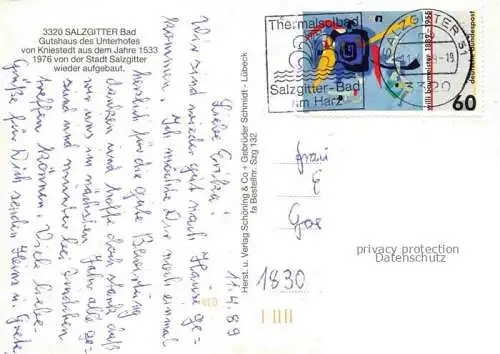 3320 SALZGITTER Bad
Gutshaus des Unterhofes
von Kniestedt aus dem Jahre 1533
1976 von der Stadt Salzgitter
wieder aufgebaut.
11.4.89
Liebe Erika!
Wir sind wieder gut nach Hause ge-
kommen. Ich möchte Dir noch einmal
herzlich für die gute Bewirtung
danken und hoffe doch sehr daß
wir uns im nächsten Jahr alle ge-
sund und munter bei
treffen können. Viele liebe
Grüße für Dich senden Heinz u. Grete
Herst. u. Verlag Schöning & Co + Gebrüder Schmidt - Lübeck
fa Bestellnr. Szg 132
Thermalsolbad
Salzgitter-Bad
im Harz
SALZGITTER 51
-19
3320
willi baumeister 1889-1955
deutsche bundespost
60
Frau
E
Gos
1830
privacy protection
Datenschutz